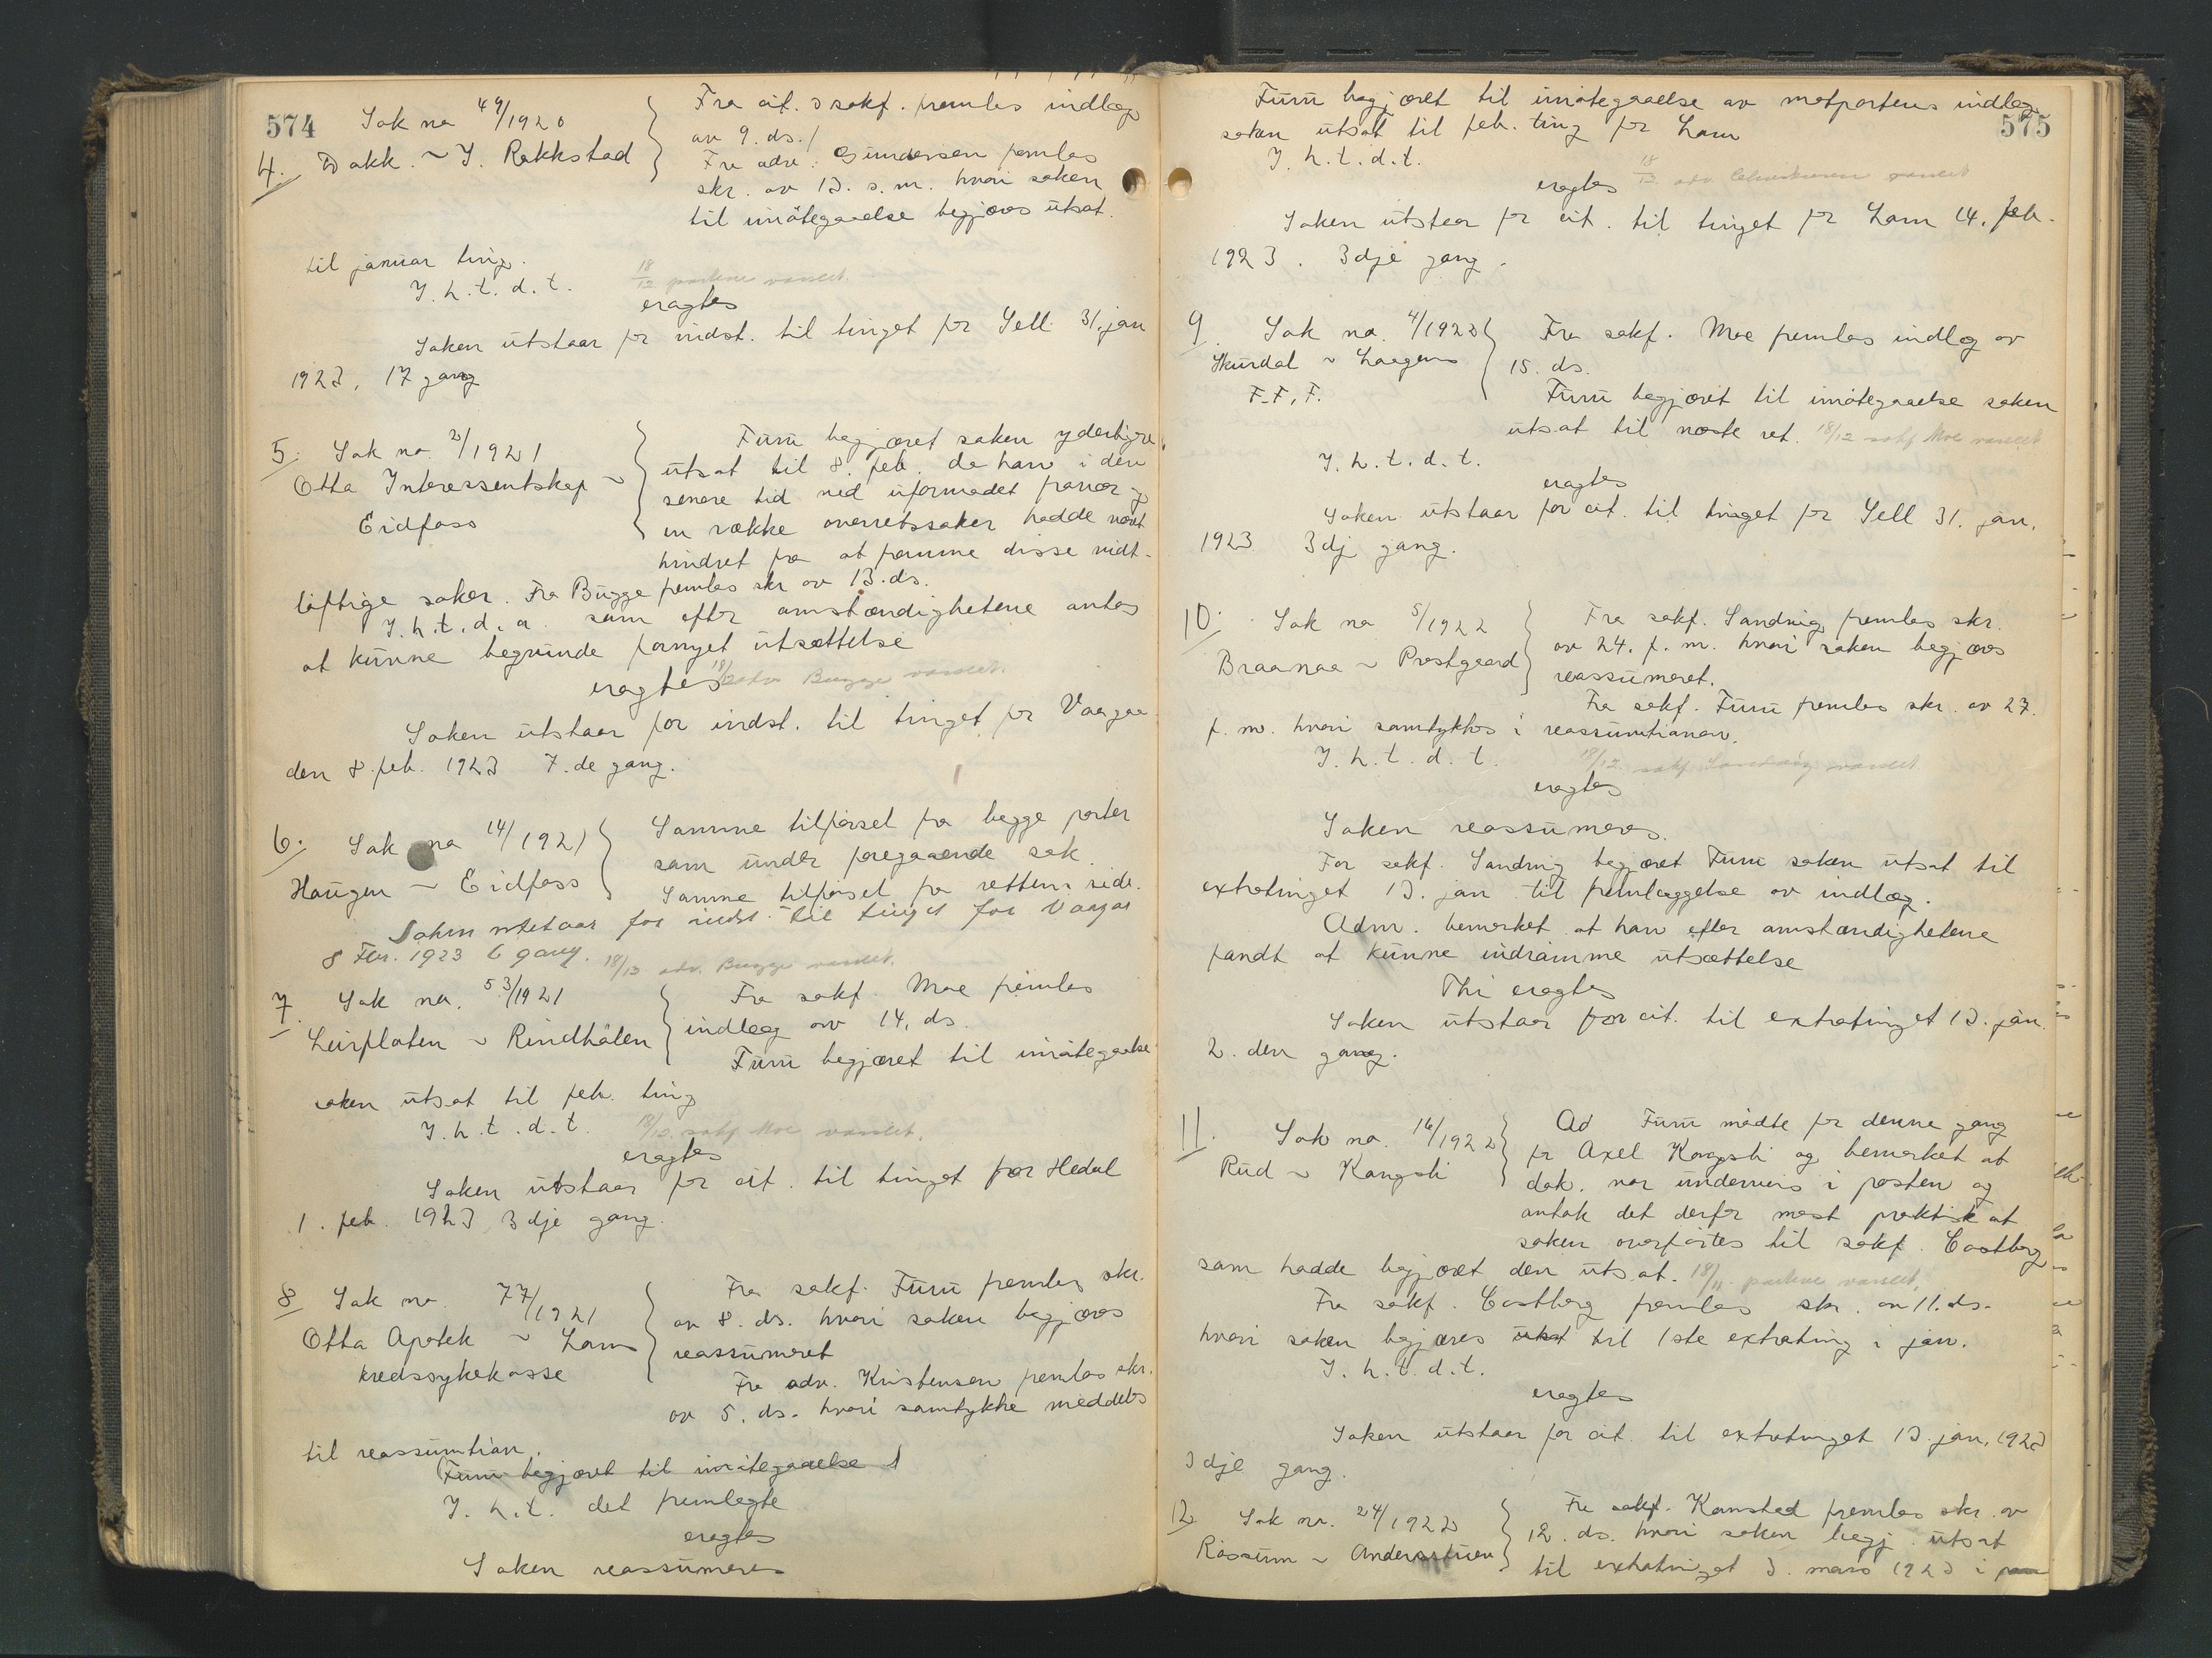 574
Sak no 49/1920
4. Dokk. ~ J. Rakkstad
Fra cit. s sakf. fremlas indlæg
av 9. ds./
Fra adv. Gundersen fremlas
skr. av 13. s.m. hvori saken
til imøtegaaelse begjæres utsat
til januar ting.
J. h. t. d. t.
18/12 partene varslet.
eragtes
Saken utstaar for indst. til tinget for Sell 31. jan
1923, 17 gang
5. Sak no. 2/1921
Otta Interessentskap ~
Eidfoss
Furu begjæret saken yderligere
utsat til 8. feb. da han i den
senere tid ved uformodet fravær og
en række overretssaker hadde været
hindret fra at fremme disse vidt-
løftige saker. Fra Bugge fremlas skr av 13. ds.
J. h. t. d. a. som efter omstændighetene antas
at kunne begrunde fornyet utsættelse
eragtes 18/12 adv. Bugge varslet.
Saken utstaar for indst. til tinget for Vaagaa
den 8. feb. 1923 7.de gang.
6. Sak no 14/1921
Haugen ~ Eidfoss
Samme tilførsel fra begge parter
som under foregaaende sak.
Samme tilførsel fra rettens side.
Saken utstaar for indst. til tinget for Vaagaa
8 Febr. 1923 6 gang. 18/12 adv. Bugge varslet.
7. Sak no. 53/1921
Leirfloten ~ Rindhølen
Fra sakf. Moe fremlas
indlæg av 14. ds.
Furu begjæret til imøtegaaelse
saken utsat til feb. ting
J. h. t. d. t. 18/12 sakf Moe varslet.
eragtes
Saken utstaar for cit. til tinget for Hedal
1. feb. 1923 3dje gang.
8 Sak no. 77/1921
Otta Apotek ~ Lom
kredssykekasse
Fra sakf. Furu fremlas skr.
av 8. ds. hvori saken begjæres
reassumeret
Fra adv. Kristensen fremlas skr.
av 5. ds. hvori samtykke meddeles
til reassumtion.
(Furu begjæret til imøtegaaelse)
J. h. t. det fremlagte
eragtes
Saken reassumeres
575
Furu begjæret til imøtegaaelse av motpartens indlæg
saken utsat til feb. ting for Lom
J. h. t. d. t.
eragtes 18/12 adv. varslet
Saken utstaar for cit. til tinget for Lom 14. feb.
1923. 3dje gang.
9. Sak no. 4/1922
Skurdal ~ Laagens
F. F. F.
Fra sakf. Moe fremlas indlæg av
15. ds.
Furu begjæret til imøtegaaelse saken
utsat til næste ret. 18/12 sakf Moe varslet
J. h. t. d. t.
eragtes
Saken utstaar for cit. til tinget for Sell 31. jan.
1923 3dj gang.
10. Sak no 5/1922
Braanaa ~ Prestgaard
Fra sakf. Sandvig fremlas skr.
av 24. f. m. hvori saken begjæres
reassumeret.
Fra sakf. Furu fremlas skr. av 27.
f. m. hvori samtykkes i reassumtionen.
J. h. t. d. t. 18/12 sakf Sandvig varslet
eragtes
Saken reassumeres.
For sakf. Sandvig begjæret Furu saken utsat til
extratinget 13. jan til fremlæggelse av indlæg.
Adm. bemerket at han efter omstændighetene
fandt at kunne indrømme utsættelse
Thi eragtes
Saken utstaar for cit. til extratinget 13. jan.
2. den gang.
11. Sak no. 16/1922
Rud ~ Kongsli
Ad Furu mødte for denne gang
for Axel Kongsli og bemerket at
dok. var underveis i posten og
antok det derfor mest praktisk at
saken overførtes til sakf. Castberg
som hadde begjæret den utsat. 18/11 partene varslet.
Fra sakf. Castberg fremlas skr. av 11. ds.
hvori saken begjæres utsat til 1ste extrating i jan.
J. h. t. d. t.
eragtes
Saken utstaar for cit. til extratinget 13. jan. 1923
3dje gang.
12. Sak no. 24/1922
Røssum ~ Andersstuen
Fra sakf. Komstad fremlas skr. av
12. ds. hvori saken begj. utsat
til extratinget 3. mars 1923 i